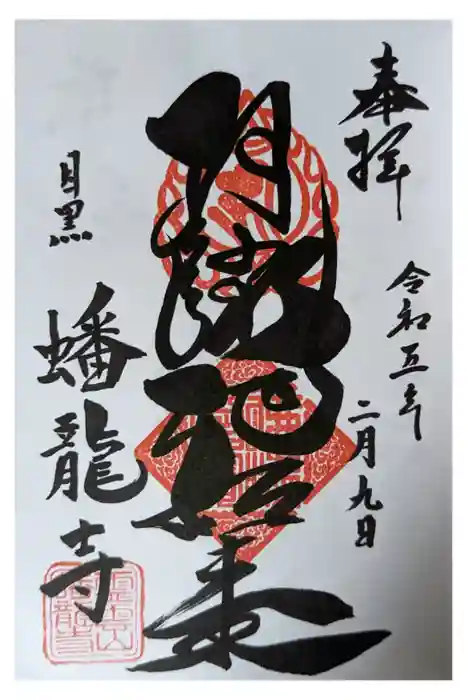 奉拝
令和五年
二月九日
阿弥陀如来
目黒
蟠龍寺